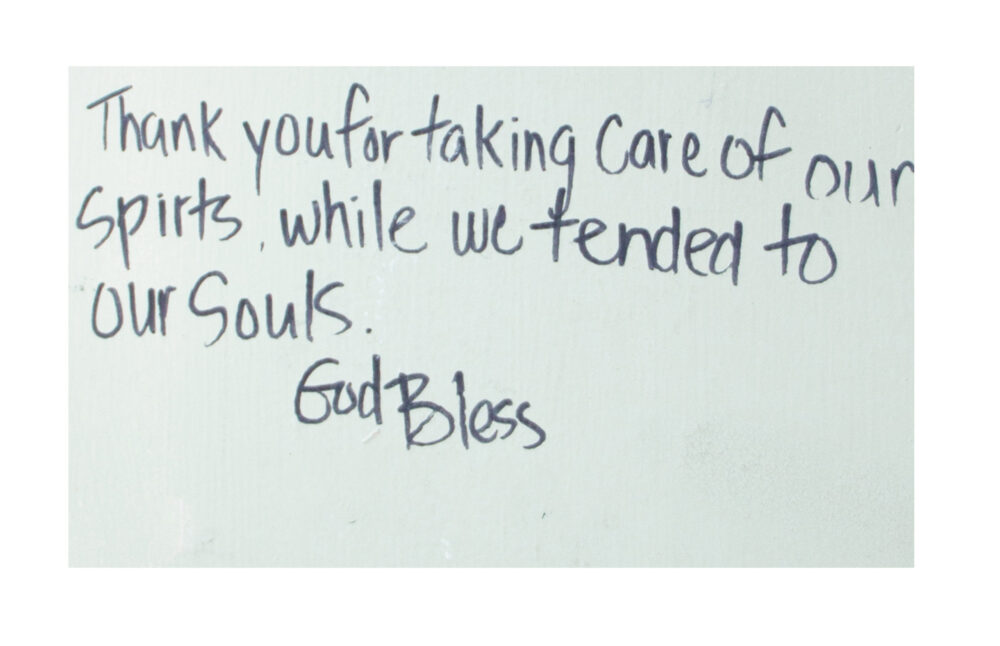 Thank you for taking Care of our
Spirts, while we tended to
our Souls.
God Bless